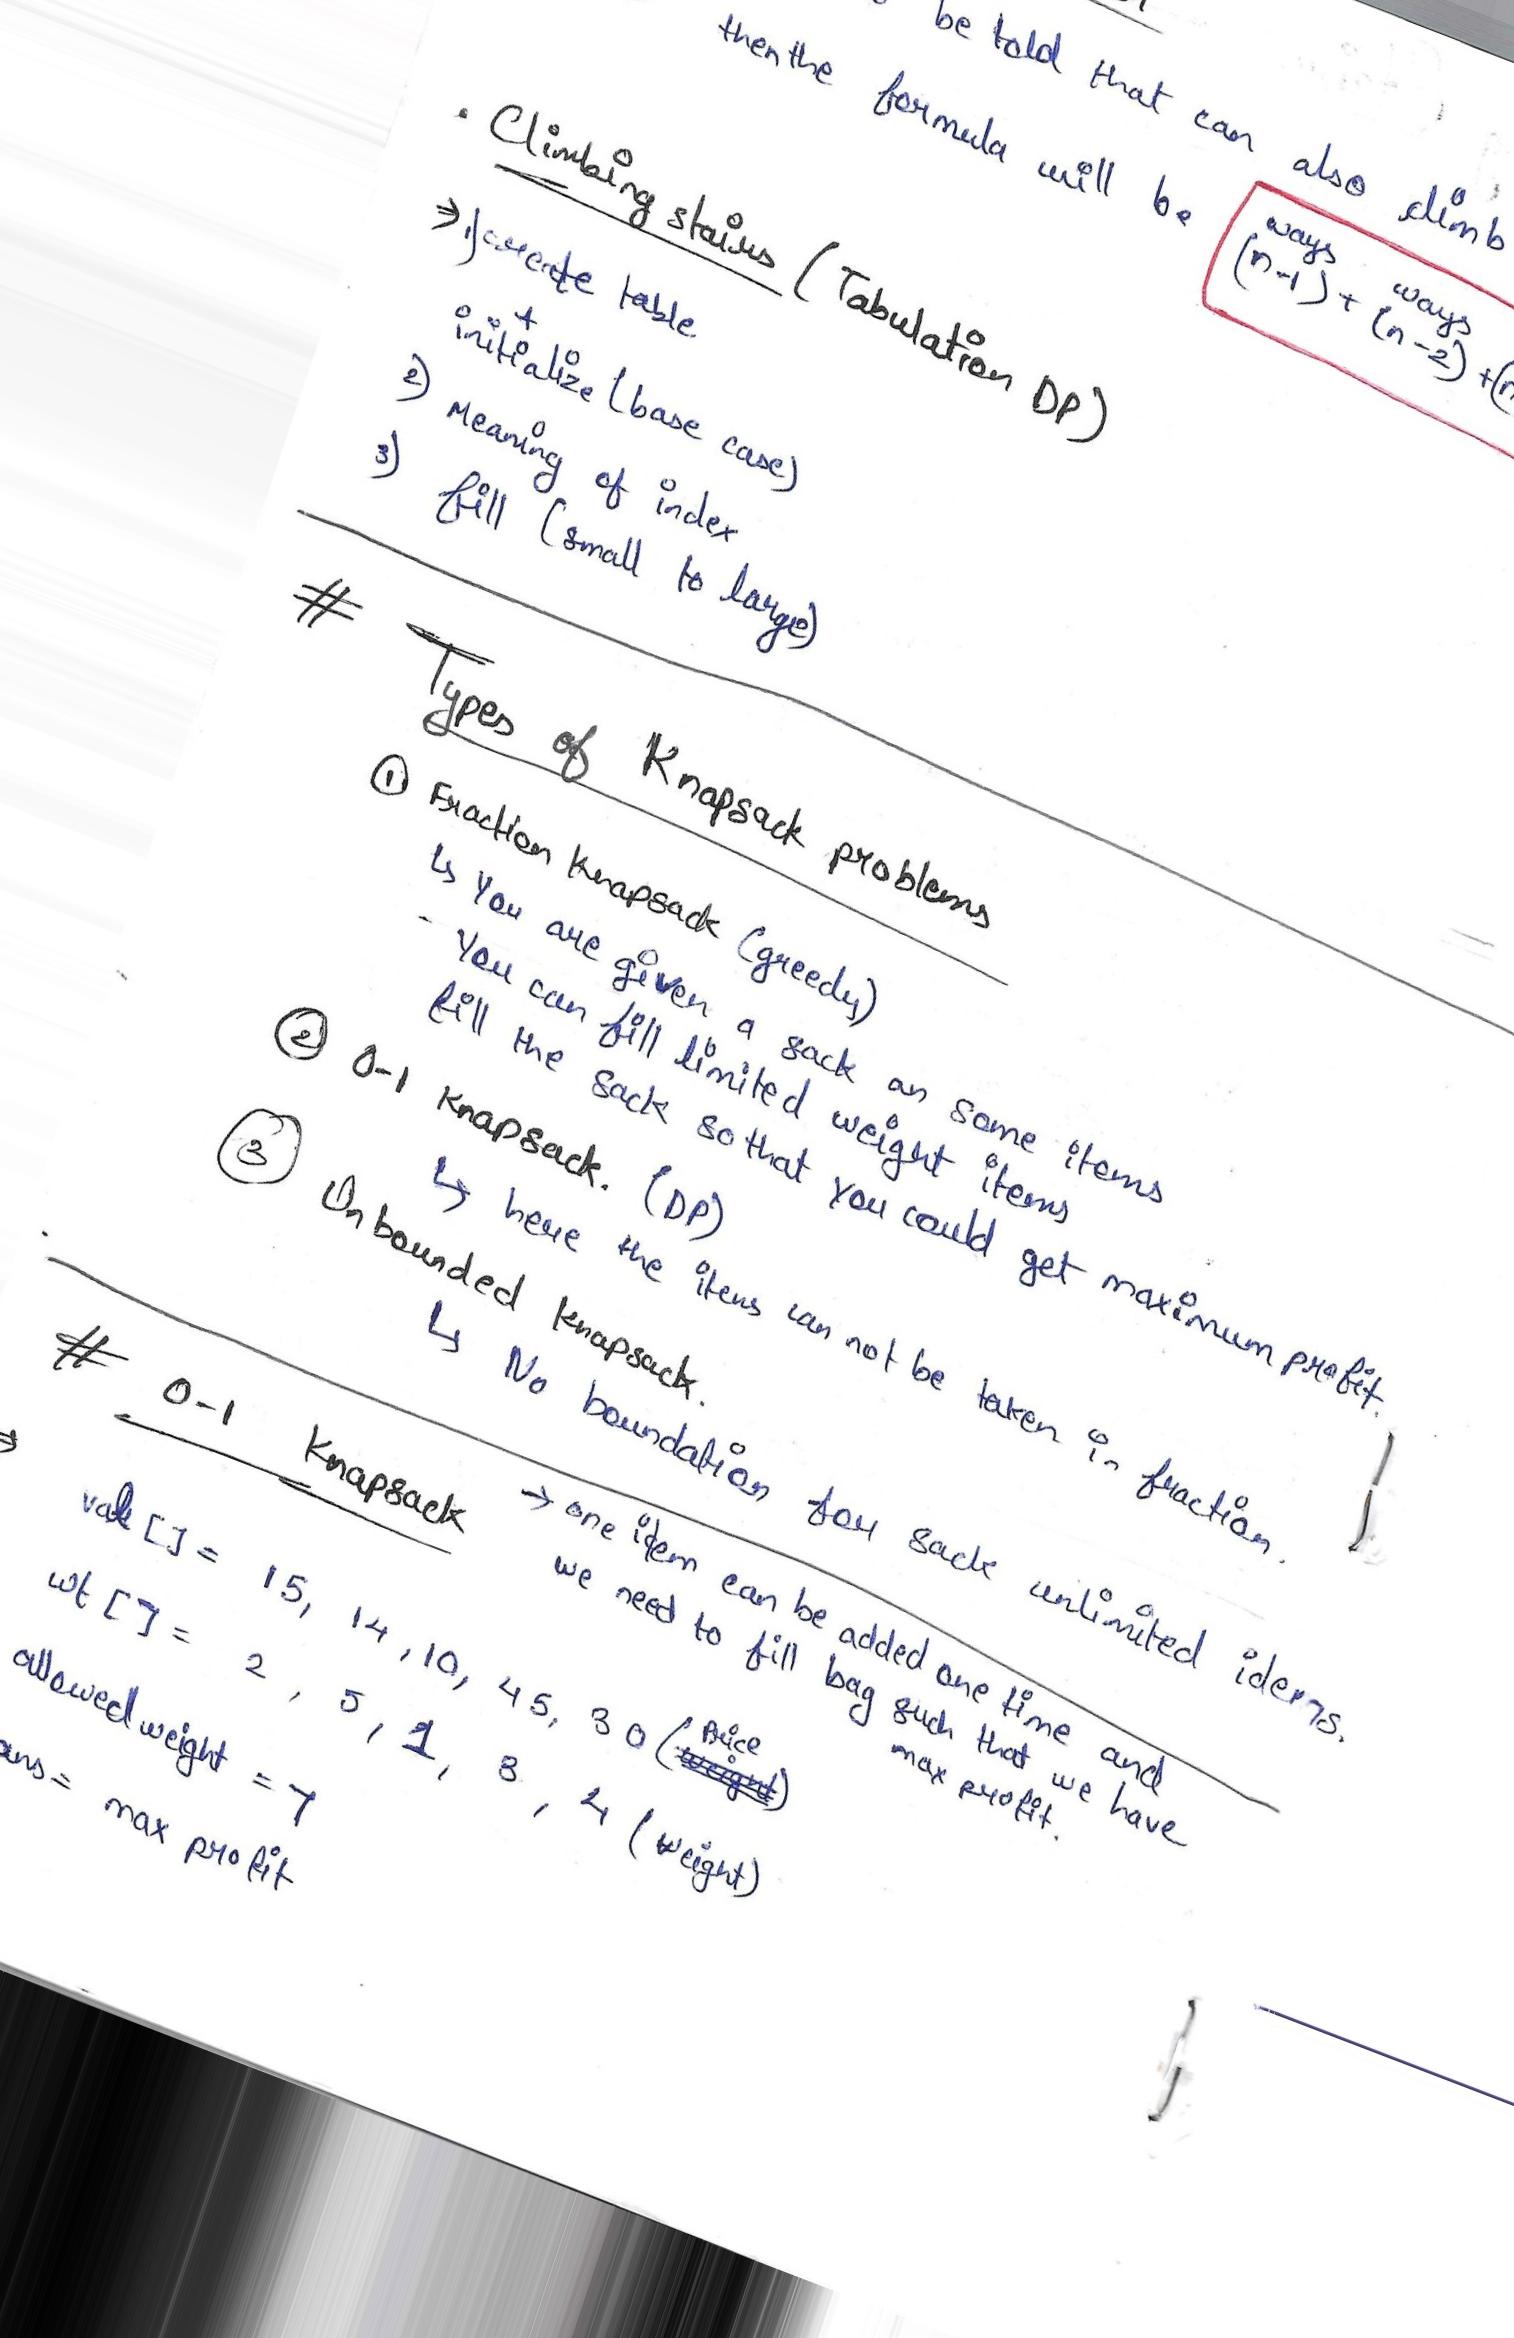 be told that can also climb
then the formula will be
ways ways
(n-1) + (n-2) +(n
. Climbing stairs (Tabulation DP)
⇒ 1) create table
+
initialize (base case)
2) Meaning of index
3) fill (small to large)
# Types of Knapsack problems
① Fraction Knapsack (greedy)
↳ You are given a sack an some items
- You can fill limited weight items
fill the sack so that you could get maximum profit.
② 0-1 Knapsack. (DP)
↳ here the items can not be taken in fraction.
③ Unbounded Knapsack.
↳ No boundation for sack unlimited idems.
# 0-1 Knapsack → one item can be added one time and
we need to fill bag such that we have
max profit.
⇒ val [] = 15, 14, 10, 45, 30 (Price)
wt [] = 2, 5, 1, 3, 4 (weight)
allowed weight = 7
ans = max profit